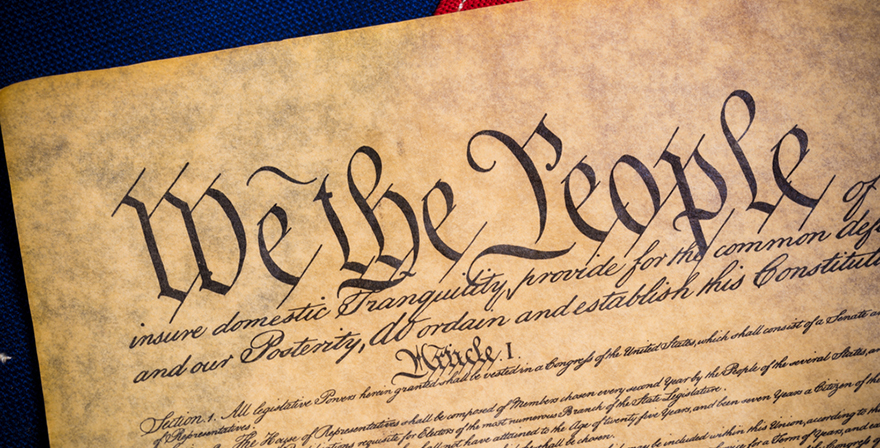 We the People of
insure domestic Tranquility, provide for the common def
and our Posterity, do ordain and establish this Constituti
Article. I.
Section. 1. All legislative Powers herein granted shall be vested in a Congress of the United States, which shall consist of a Senate a
of Representatives.
The House of Representatives shall be composed of Members chosen every second Year by the People of the several States, an
requisite for Electors of the most numerous Branch of the State Legislature.
not have attained to the Age of twenty five Years, and been seven Years a Citizen of the
shall be chosen.
may be included within this Union, according to th